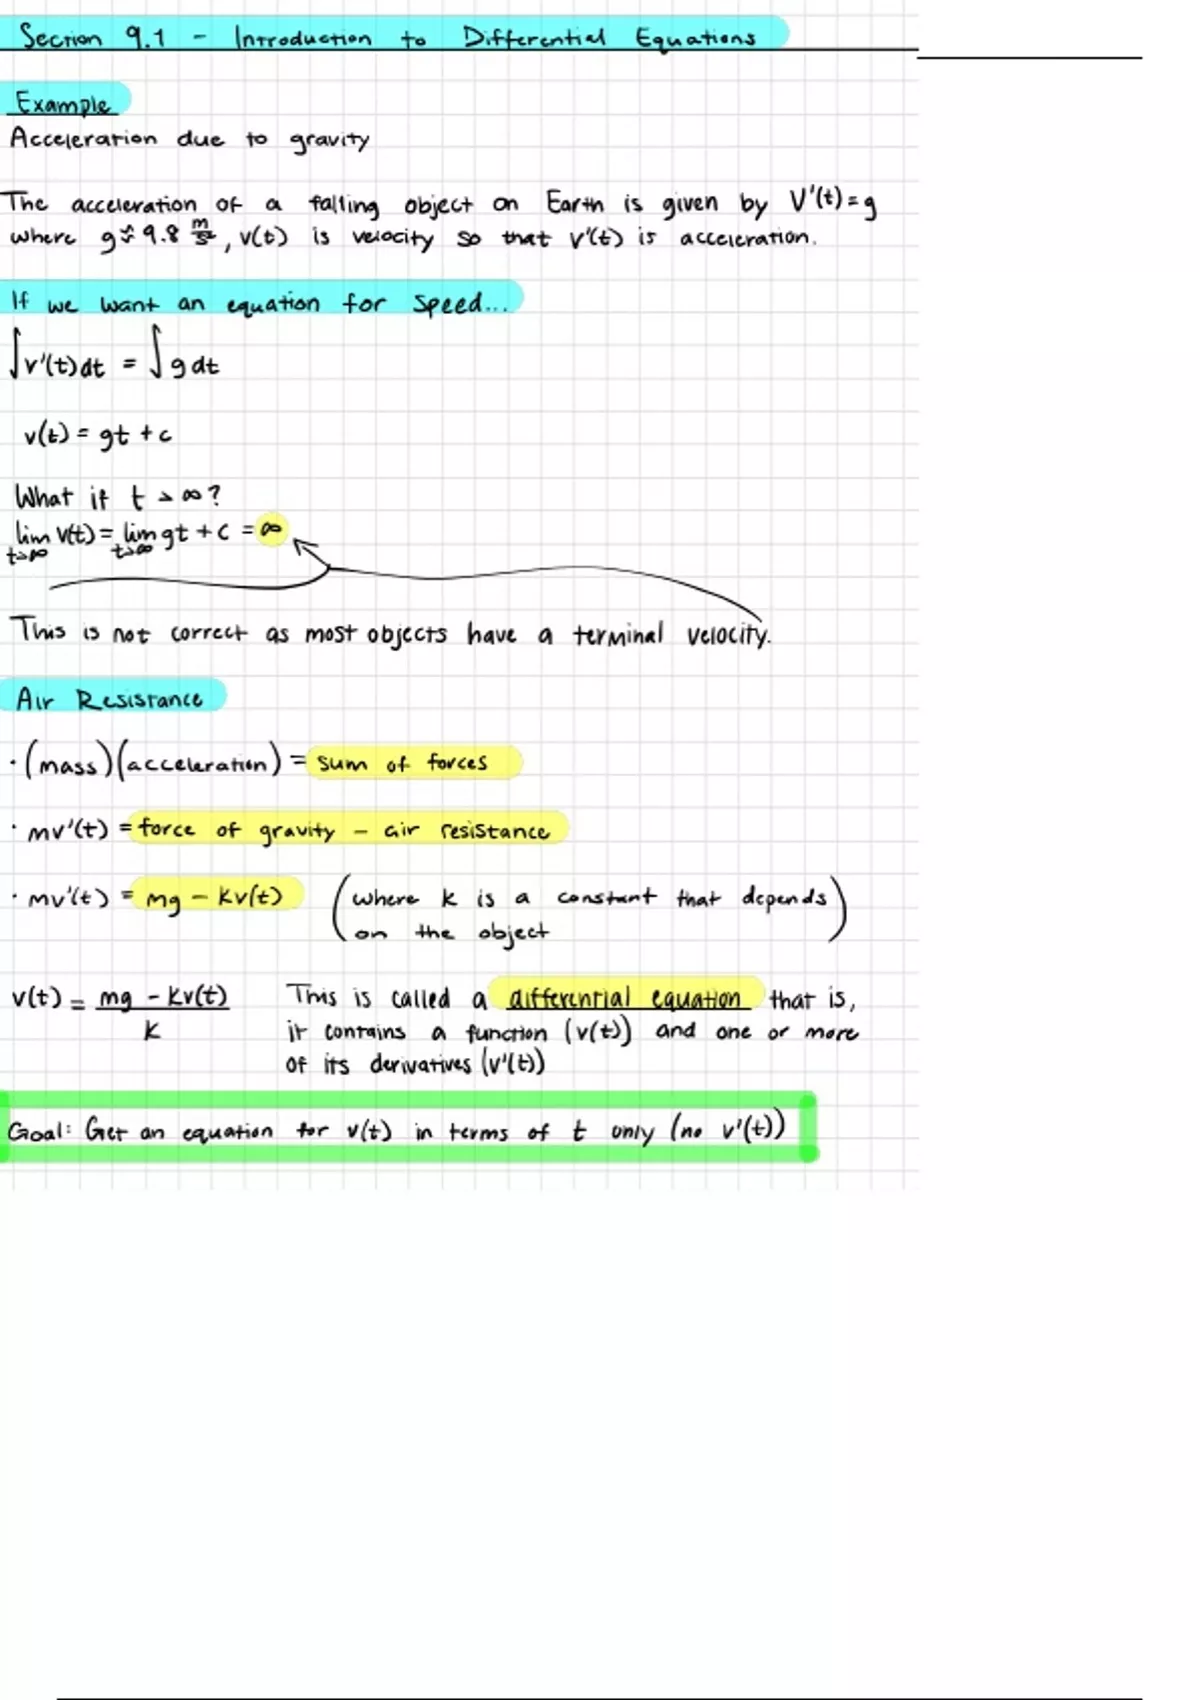 Section 9.1 - Introduction to Differential Equations
Example
Acceleration due to gravity
The acceleration of a falling object on Earth is given by V'(t) = g
where g ≈ 9.8 m/s, v(t) is velocity so that v'(t) is acceleration.
If we want an equation for speed...
∫v'(t)dt = ∫g dt
v(t) = gt + c
What if t → ∞?
lim t→∞ v(t) = lim t→∞ gt + c = ∞
This is not correct as most objects have a terminal velocity.
Air Resistance
· (mass)(acceleration) = sum of forces
· mv'(t) = force of gravity - air resistance
· mv'(t) = mg - kv(t) (where k is a constant that depends
on the object)
v(t) = mg - kv(t) / k This is called a differential equation that is,
it contains a function (v(t)) and one or more
of its derivatives (v'(t))
Goal: Get an equation for v(t) in terms of t only (no v'(t))